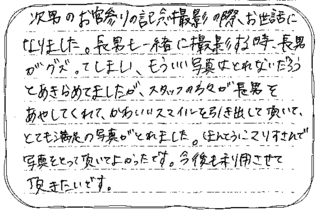 次男のお宮参りの記念撮影の際、お世話に
なりました。長男も一緒に撮影する時、長男
がグズってしまし、もういい写真はとれないだろう
とあきらめてましたが、スタッフの方々が長男を
あやしてくれて、かわいいスマイルを引き出して頂いて、
とても満足の写真がとれました。ほんとうにマリオさんで
写真をとって頂いてよかったです。今後も利用させて
頂きたいです。